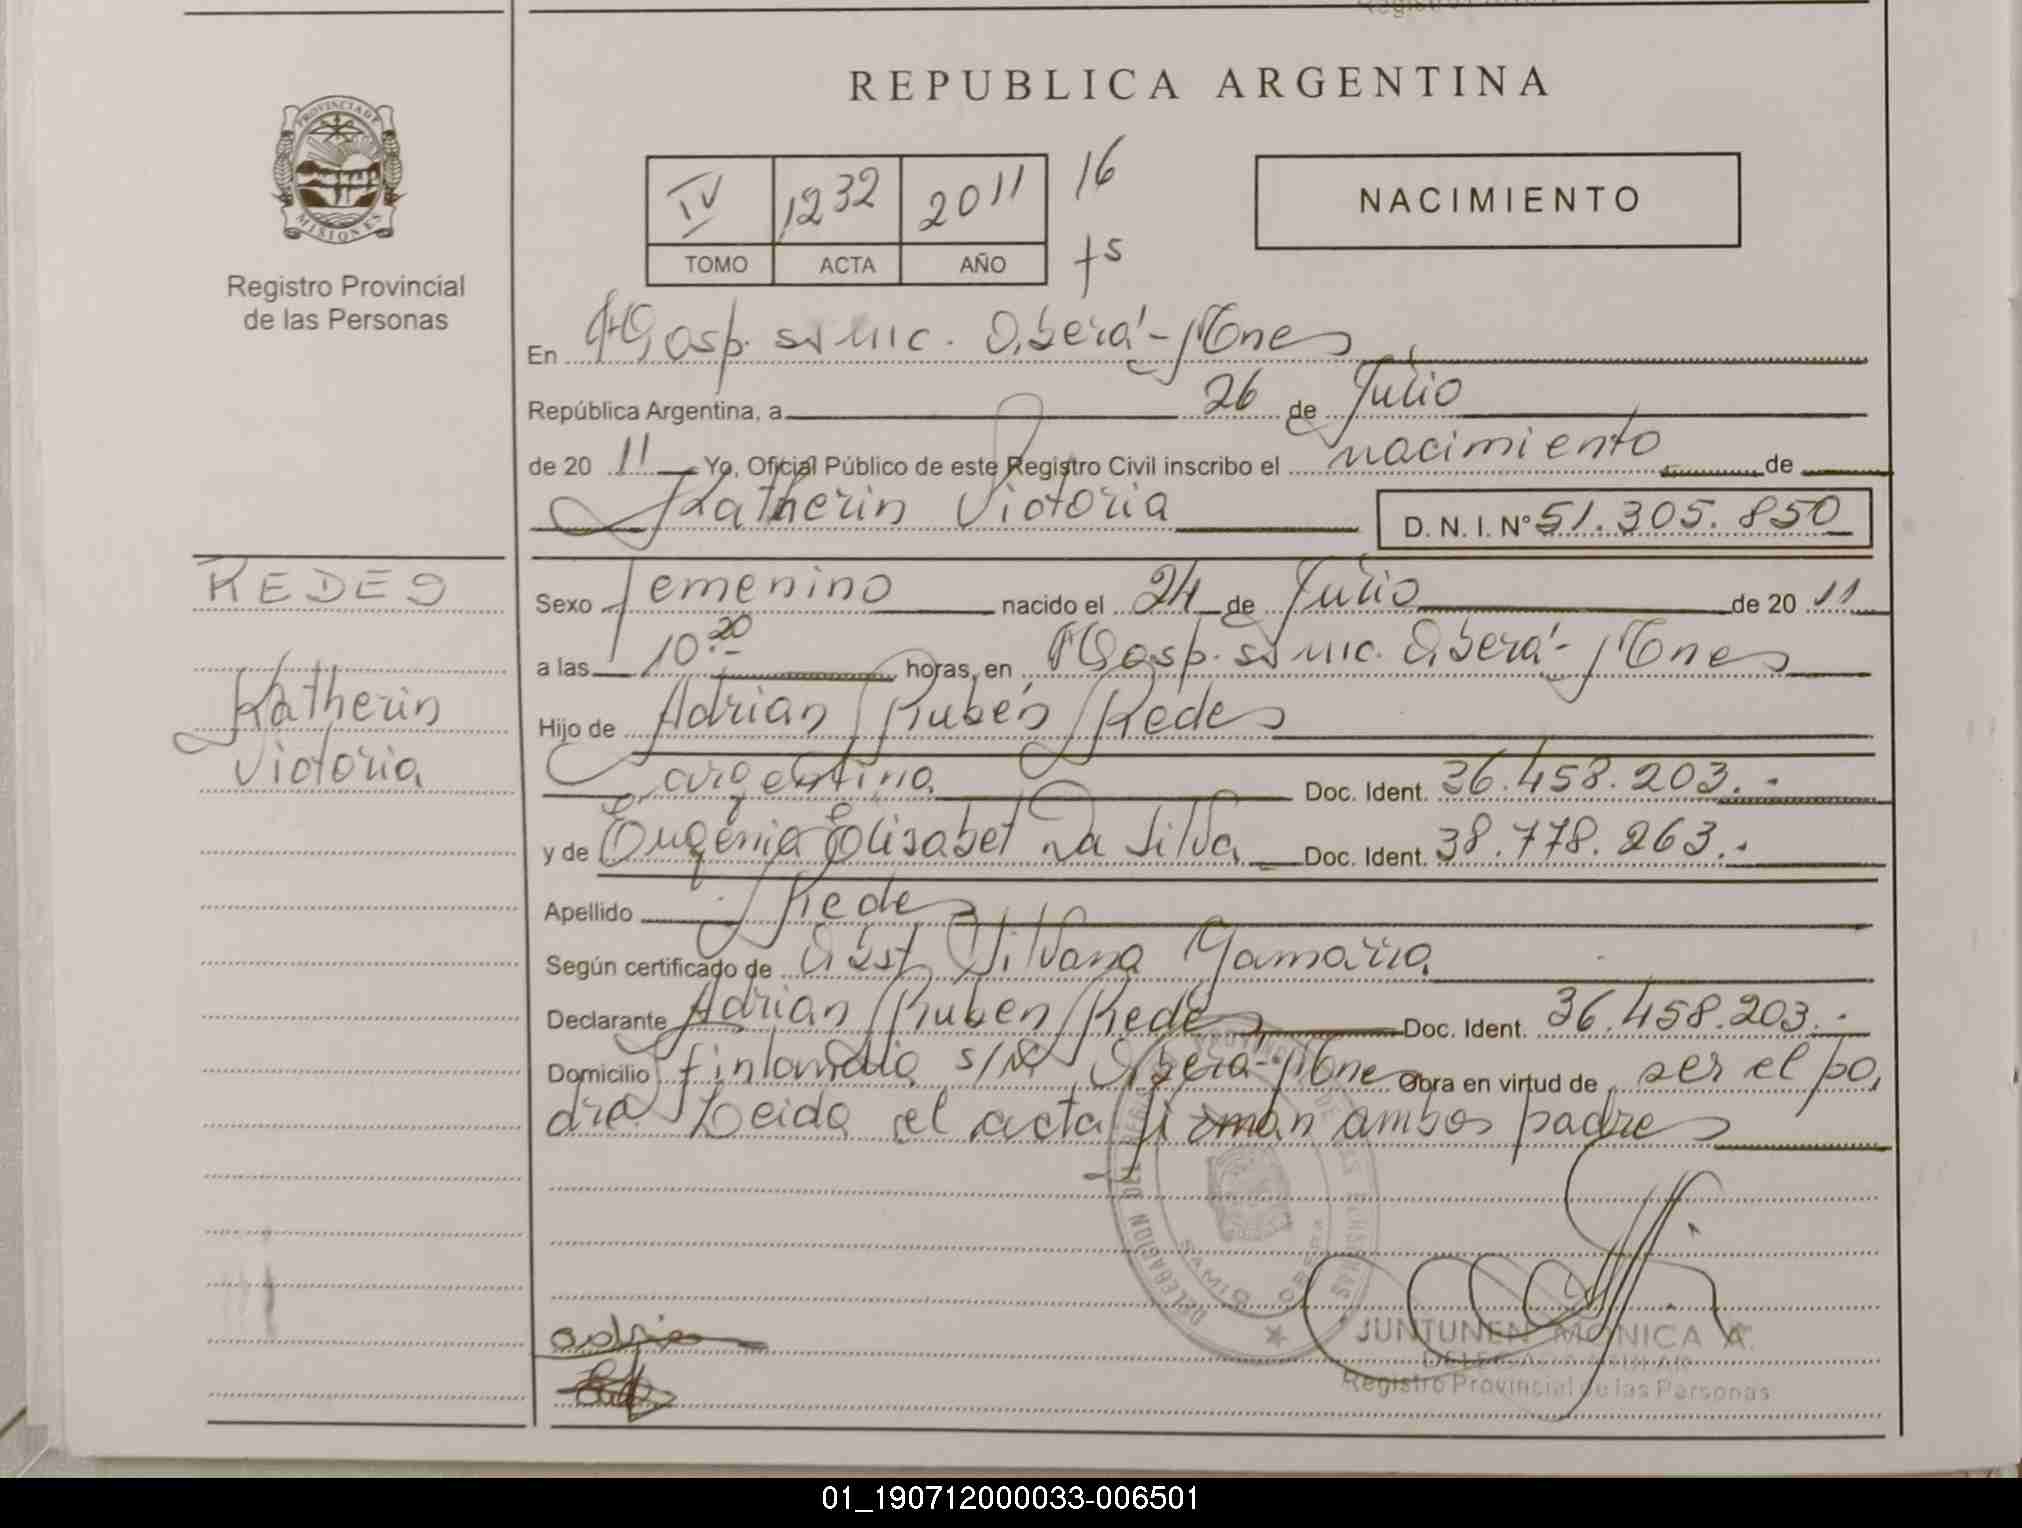 REPUBLICA ARGENTINA
PROVINCIA DE
MISIONES
Registro Provincial
de las Personas
IV 1232 2011 16
TOMO ACTA AÑO f5
NACIMIENTO
En Hosp. Oberá - Mnes
República Argentina, a 26 de Julio
de 20 11 Yo, Oficial Público de este Registro Civil inscribo el nacimiento de
Katherin Victoria D. N. I. Nº 51.305.850
REDES
Katherin
Victoria
Sexo Femenino nacido el 24 de Julio de 20 11
a las 10.20 horas, en Hosp. Oberá - Mnes
Hijo de Adrian Rubén Redes
argentino Doc. Ident. 36.458.203.-
y de Eugenia Elisabet Da Silva Doc. Ident. 38.778.263.-
Apellido Redes
Según certificado de Obst Silvana Gamarra
Declarante Adrian Ruben Redes Doc. Ident. 36.458.203.-
Domicilio Finlandia s/N Oberá - Mnes Obra en virtud de ser el pa
dre. Leida el acta firman ambos padres
JUNTUNEN MONICA A.
Registro Provincial de las Personas
01_190712000033-006501